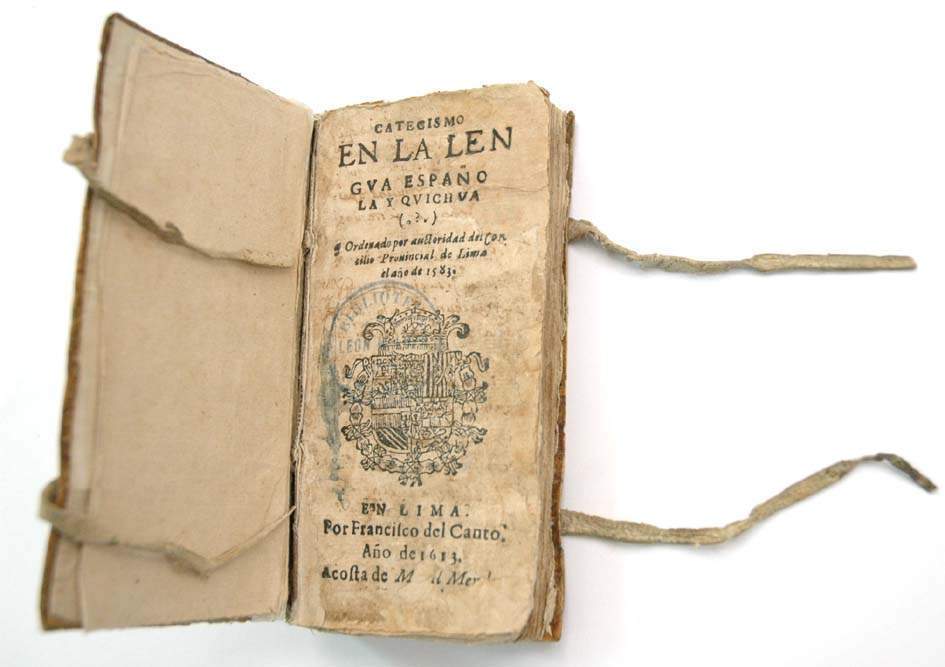 CATECISMO
EN LA LEN
GVA ESPAÑO
LA Y QVICHVA
(.?.)
Ordenado por auctoridad del Con
cilio Prouincial de Lima
el año de 1583.
BIBLIOTE
LEON
EN LIMA.
Por Franciſco del Canto.
Año de 1613.
Acoſta de